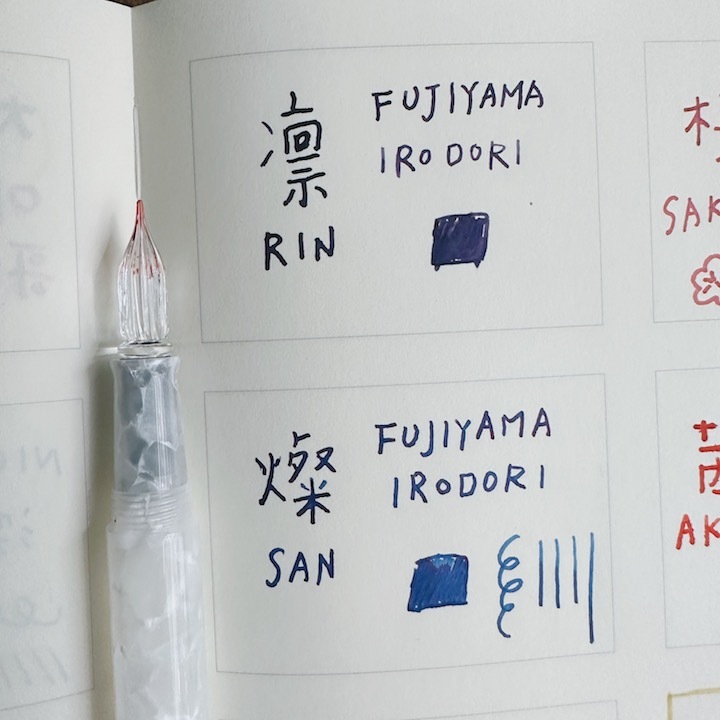 凛
RIN
FUJIYAMA
IRODORI
燦
SAN
FUJIYAMA
IRODORI
SAK
AK